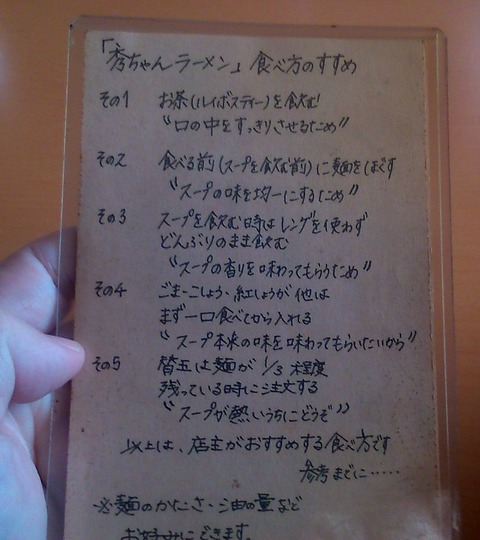 「秀ちゃんラーメン」食べ方のすすめ
その1 お茶(ルイボスティー)を飲む
"口の中をすっきりさせるため"
その2 食べる前(スープを飲む前)に麺をほぐす
"スープの味を均一にするため"
その3 スープを飲む時はレンゲを使わず
どんぶりのまま飲む
"スープの香りを味わってもらうため"
その4 ごま・こしょう、紅しょうが他は
まず一口食べてから入れる
"スープ本来の味を味わってもらいたいから"
その5 替玉は麺が1/3程度
残っている時に注文する
"スープが熱いうちにどうぞ"
以上は、店主がおすすめする食べ方です
参考までに……
※麺のかたさ、油の量など
お好みにできます。